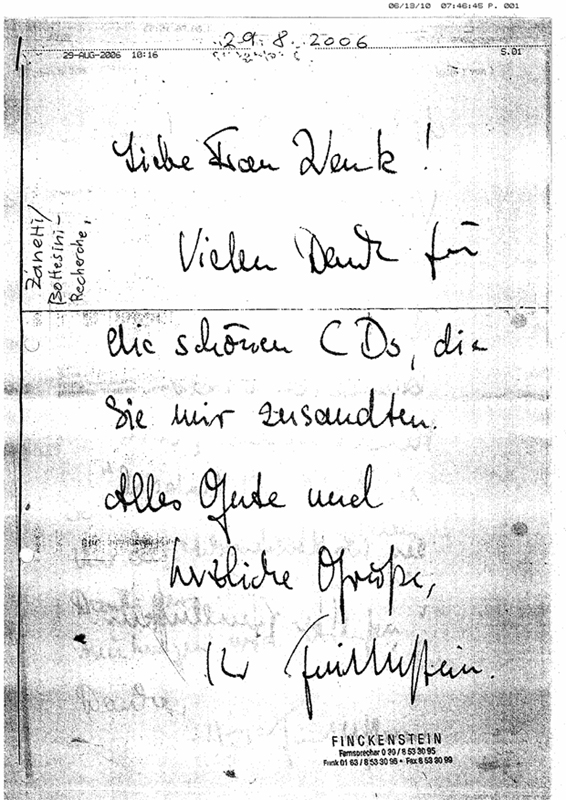 06/13/10 07:46:45 P. 001
29.8.2006
29-AUG-2006 10:16 S.01
Liebe Frau Wenk!
Zanetti/
Bottesini-
Recherche,
Vielen Dank für
die schönen CDs, die
Sie mir zusandten.
Alles Gute und
herzliche Grüße,
Ihr Finckenstein.
FINCKENSTEIN
Fernsprecher 0 30 / 8 53 30 95
Funk 01 63 / 8 53 30 95 • Fax 8 53 30 99